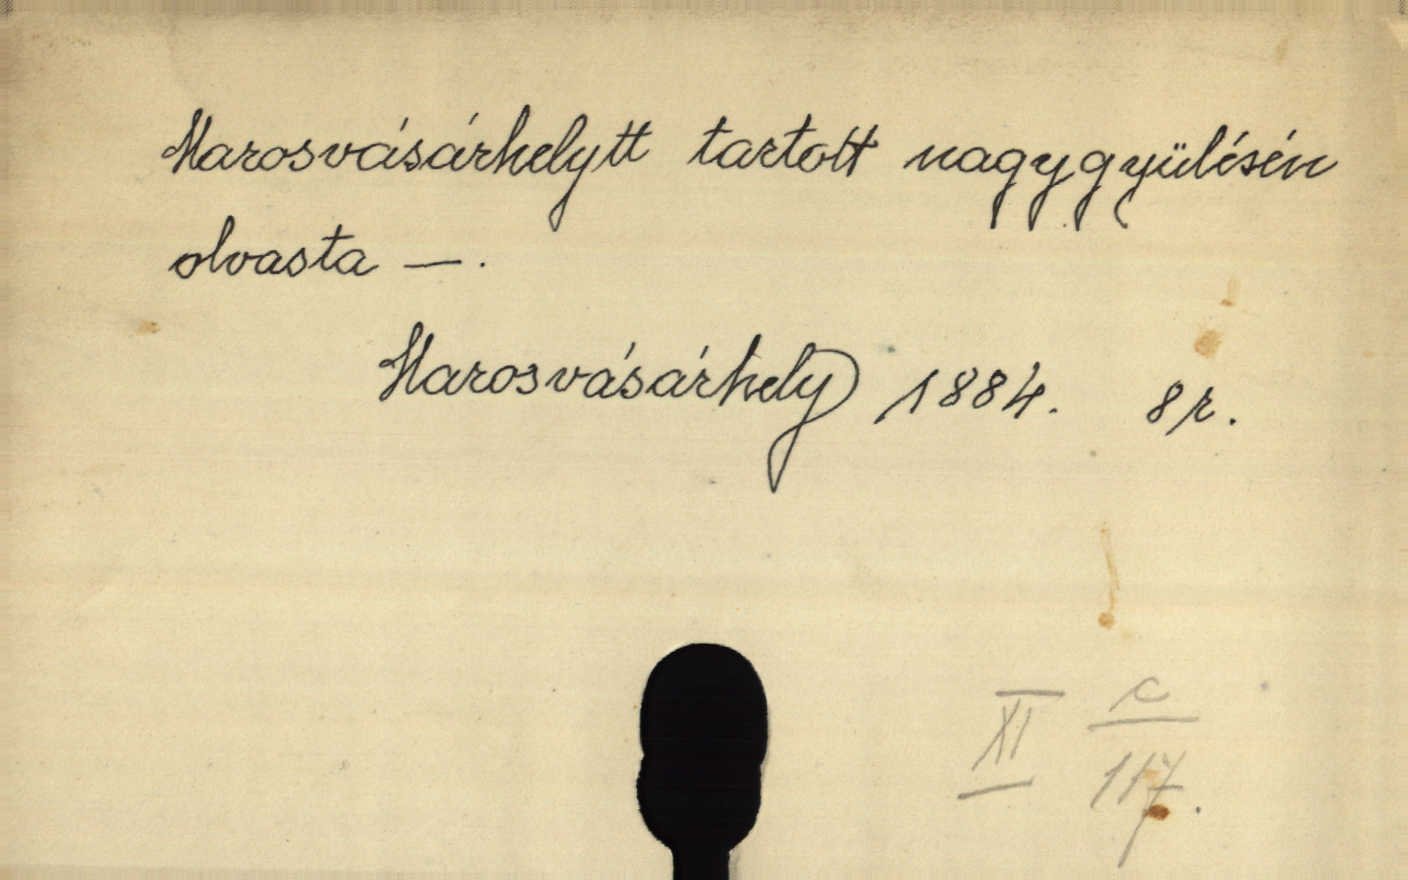 Marosvásárhelytt tartott nagygyülésén
olvasta —.
Marosvásárhely 1884. 8r.
XI c
117.